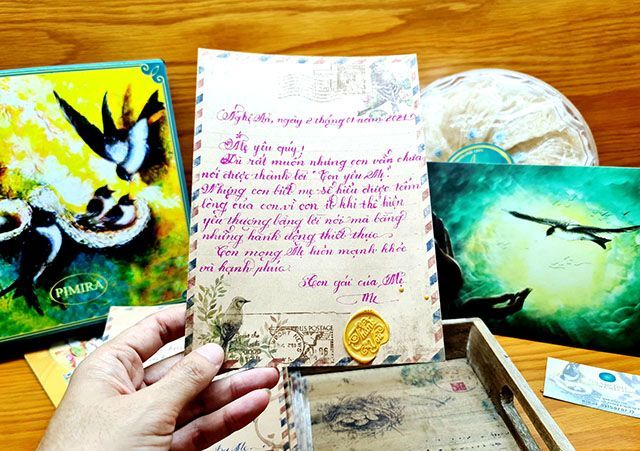 Nghệ An, ngày 2 tháng 01 năm 2021
Mẹ yêu quý!
Dù rất muốn nhưng con vẫn chưa
nói được thành lời "Con yêu Mẹ"
Nhưng con biết mẹ sẽ hiểu được tấm
lòng của con vì con ít khi thể hiện
yêu thương bằng lời nói mà bằng
những hành động thiết thực.
Con mong Mẹ luôn mạnh khỏe
và hạnh phúc.
Con gái của Mẹ
PJMIRA